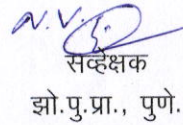 N.V.
सर्व्हेक्षक
झो.पु.प्रा., पुणे.